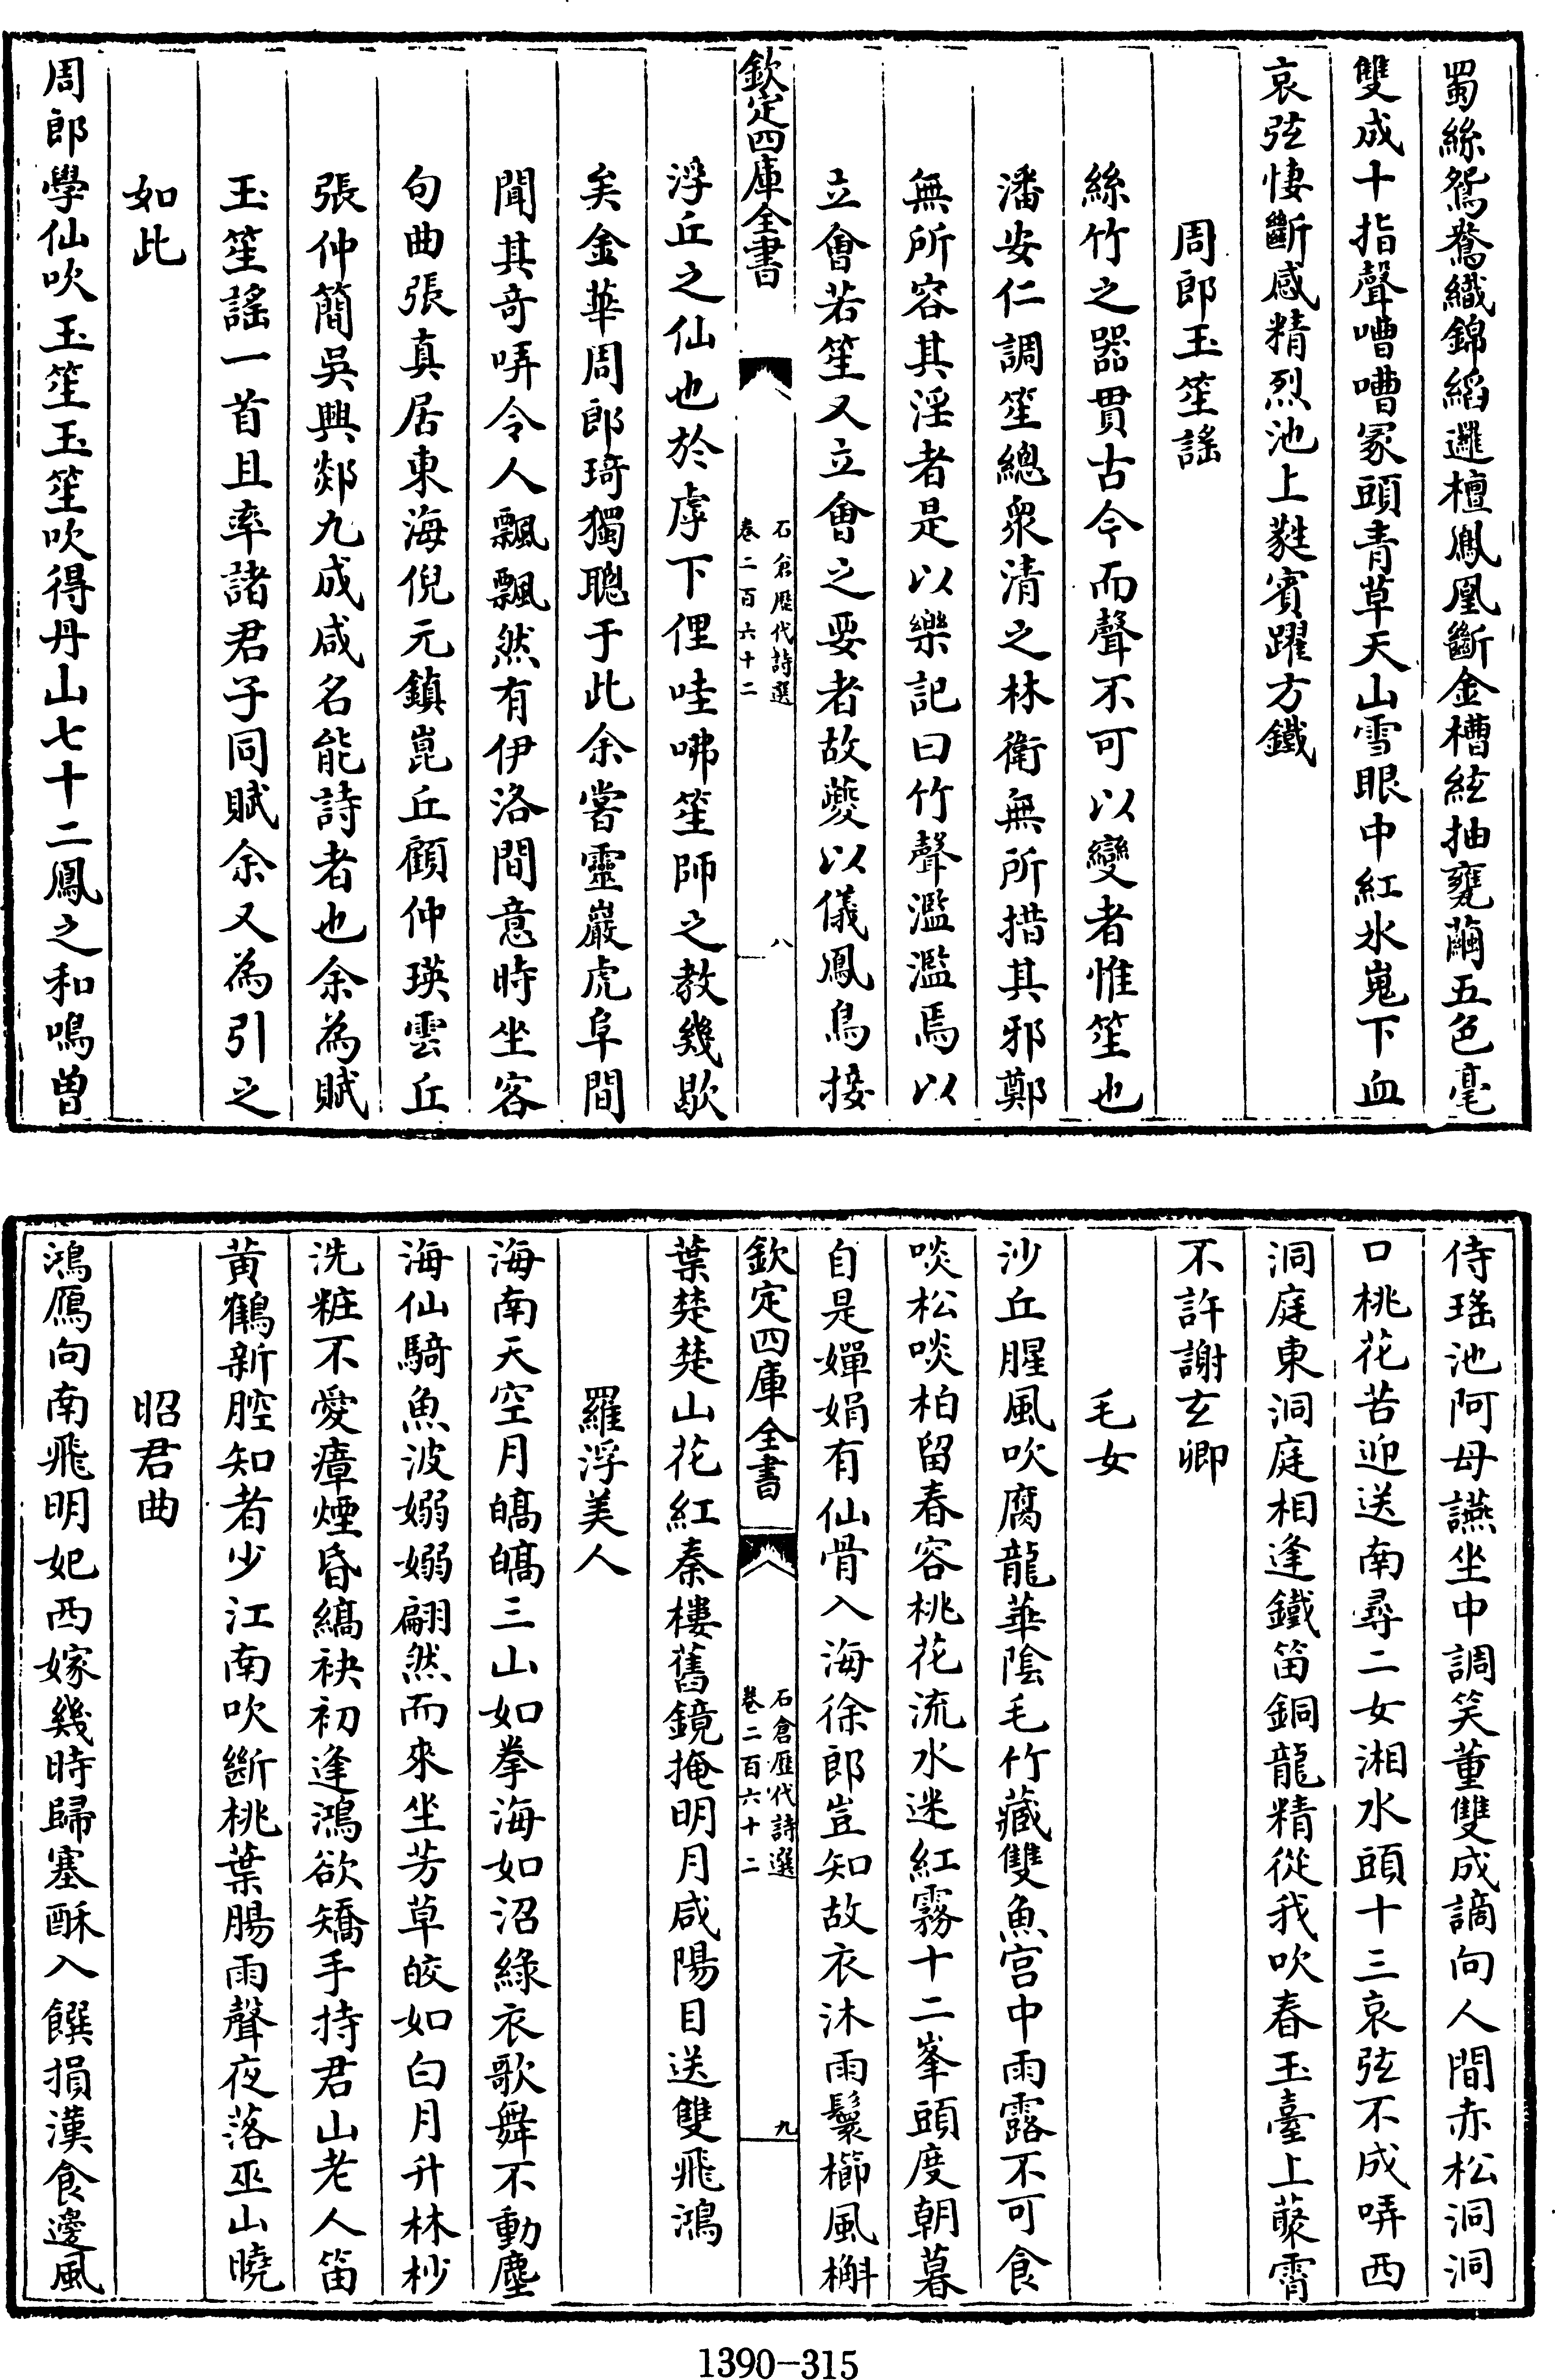 蜀絲鴛鴦織錦縚邏檀鳳凰斷金槽絃抽甕繭五色毫
雙成十指聲嘈嘈冢頭青草天山雪眼中紅氷嵬下血
哀弦悽斷感精烈池上蕤賓躍方鐵
周郎玉笙謠
絲竹之器貫古今而聲不可以變者惟笙也
潘安仁調笙總衆清之林衛無所措其邪鄭
無所容其淫者是以樂記曰竹聲濫濫焉以
立會若笙又立會之要者故夔以儀鳳鳥接
欽定四庫全書
石倉歷代詩選
卷二百六十二
八
浮丘之仙也於虖下俚哇咈笙師之教幾歇
矣金華周郎琦獨聰于此余嘗靈巖虎阜間
聞其奇哢令人飄飄然有伊洛間意時坐客
句曲張真居東海倪元鎮崑丘顧仲瑛雲丘
張仲簡吳興郯九成咸名能詩者也余為賦
玉笙謠一首且率諸君子同賦余又為引之
如此
周郎學仙吹玉笙玉笙吹得丹山七十二鳳之和鳴曾
侍瑤池阿母讌坐中調笑董雙成謫向人間赤松洞洞
口桃花苦迎送南尋二女湘水頭十三哀弦不成哢西
洞庭東洞庭相逢鐵笛銅龍精從我吹春玉臺上藂霄
不許謝玄卿
毛女
沙丘腥風吹腐龍華陰毛竹藏雙魚宮中雨露不可食
啖松啖柏留春容桃花流水迷紅霧十二峯頭度朝暮
自是嬋娟有仙骨入海徐郎豈知故衣沐雨鬟櫛風槲
欽定四庫全書
石倉歷代詩選
卷二百六十二
九
葉楚楚山花紅秦樓舊鏡掩明月咸陽目送雙飛鴻
羅浮美人
海南天空月皜皜三山如拳海如沼綠衣歌舞不動塵
海仙騎魚波嫋嫋翩然而來坐芳草皎如白月升林杪
洗粧不愛瘴煙昏縞袂初逢鴻欲矯手持君山老人笛
黃鶴新腔知者少江南吹斷桃葉腸雨聲夜落巫山曉
昭君曲
鴻鴈向南飛明妃西嫁幾時歸塞酥入饌損漢食邊風
1390-315